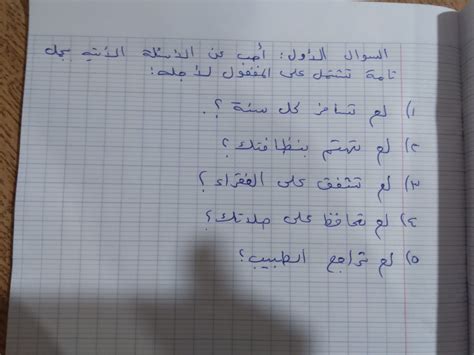 السوال الأول: أجب عن الأسئلة الآتية بجمل
تامة تشتمل على المفعول لأجله:
١) لم تسافر كل سنة؟
٢) لم تهتم بنظافتك؟
٣) لم تنفق على الفقراء؟
٤) لم تحافظ على صلاتك؟
٥) لم تراجع الطبيب؟